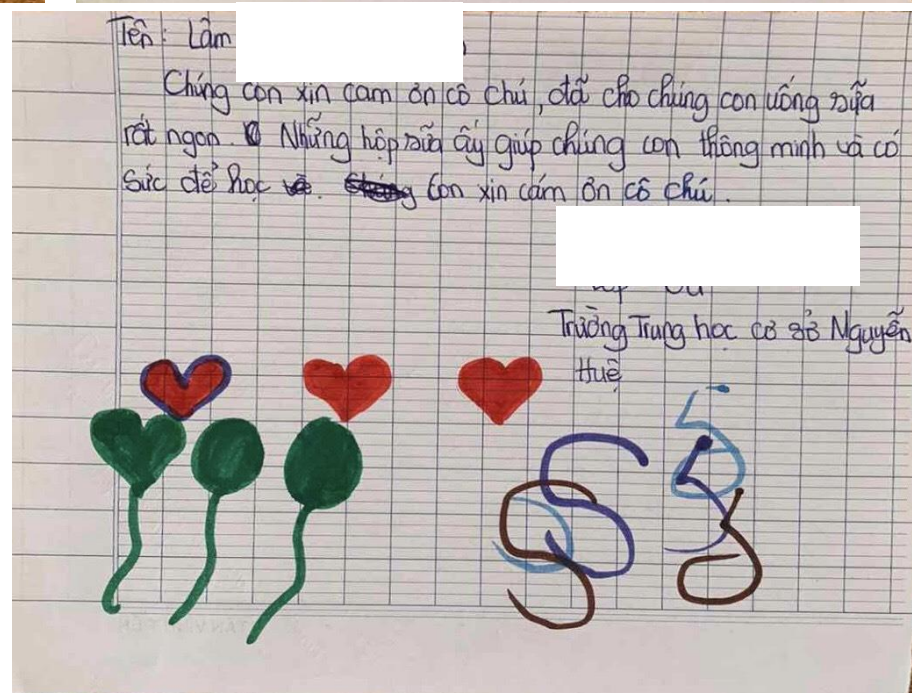 Tên: Lâm
Chúng con xin cam ơn cô chú, đã cho chúng con uống sữa
rất ngon. Những hộp sữa ấy giúp chúng con thông minh và có
sức để học. Con xin cám ơn cô chú.
Trường Trung học cơ sở Nguyễn
Huệ